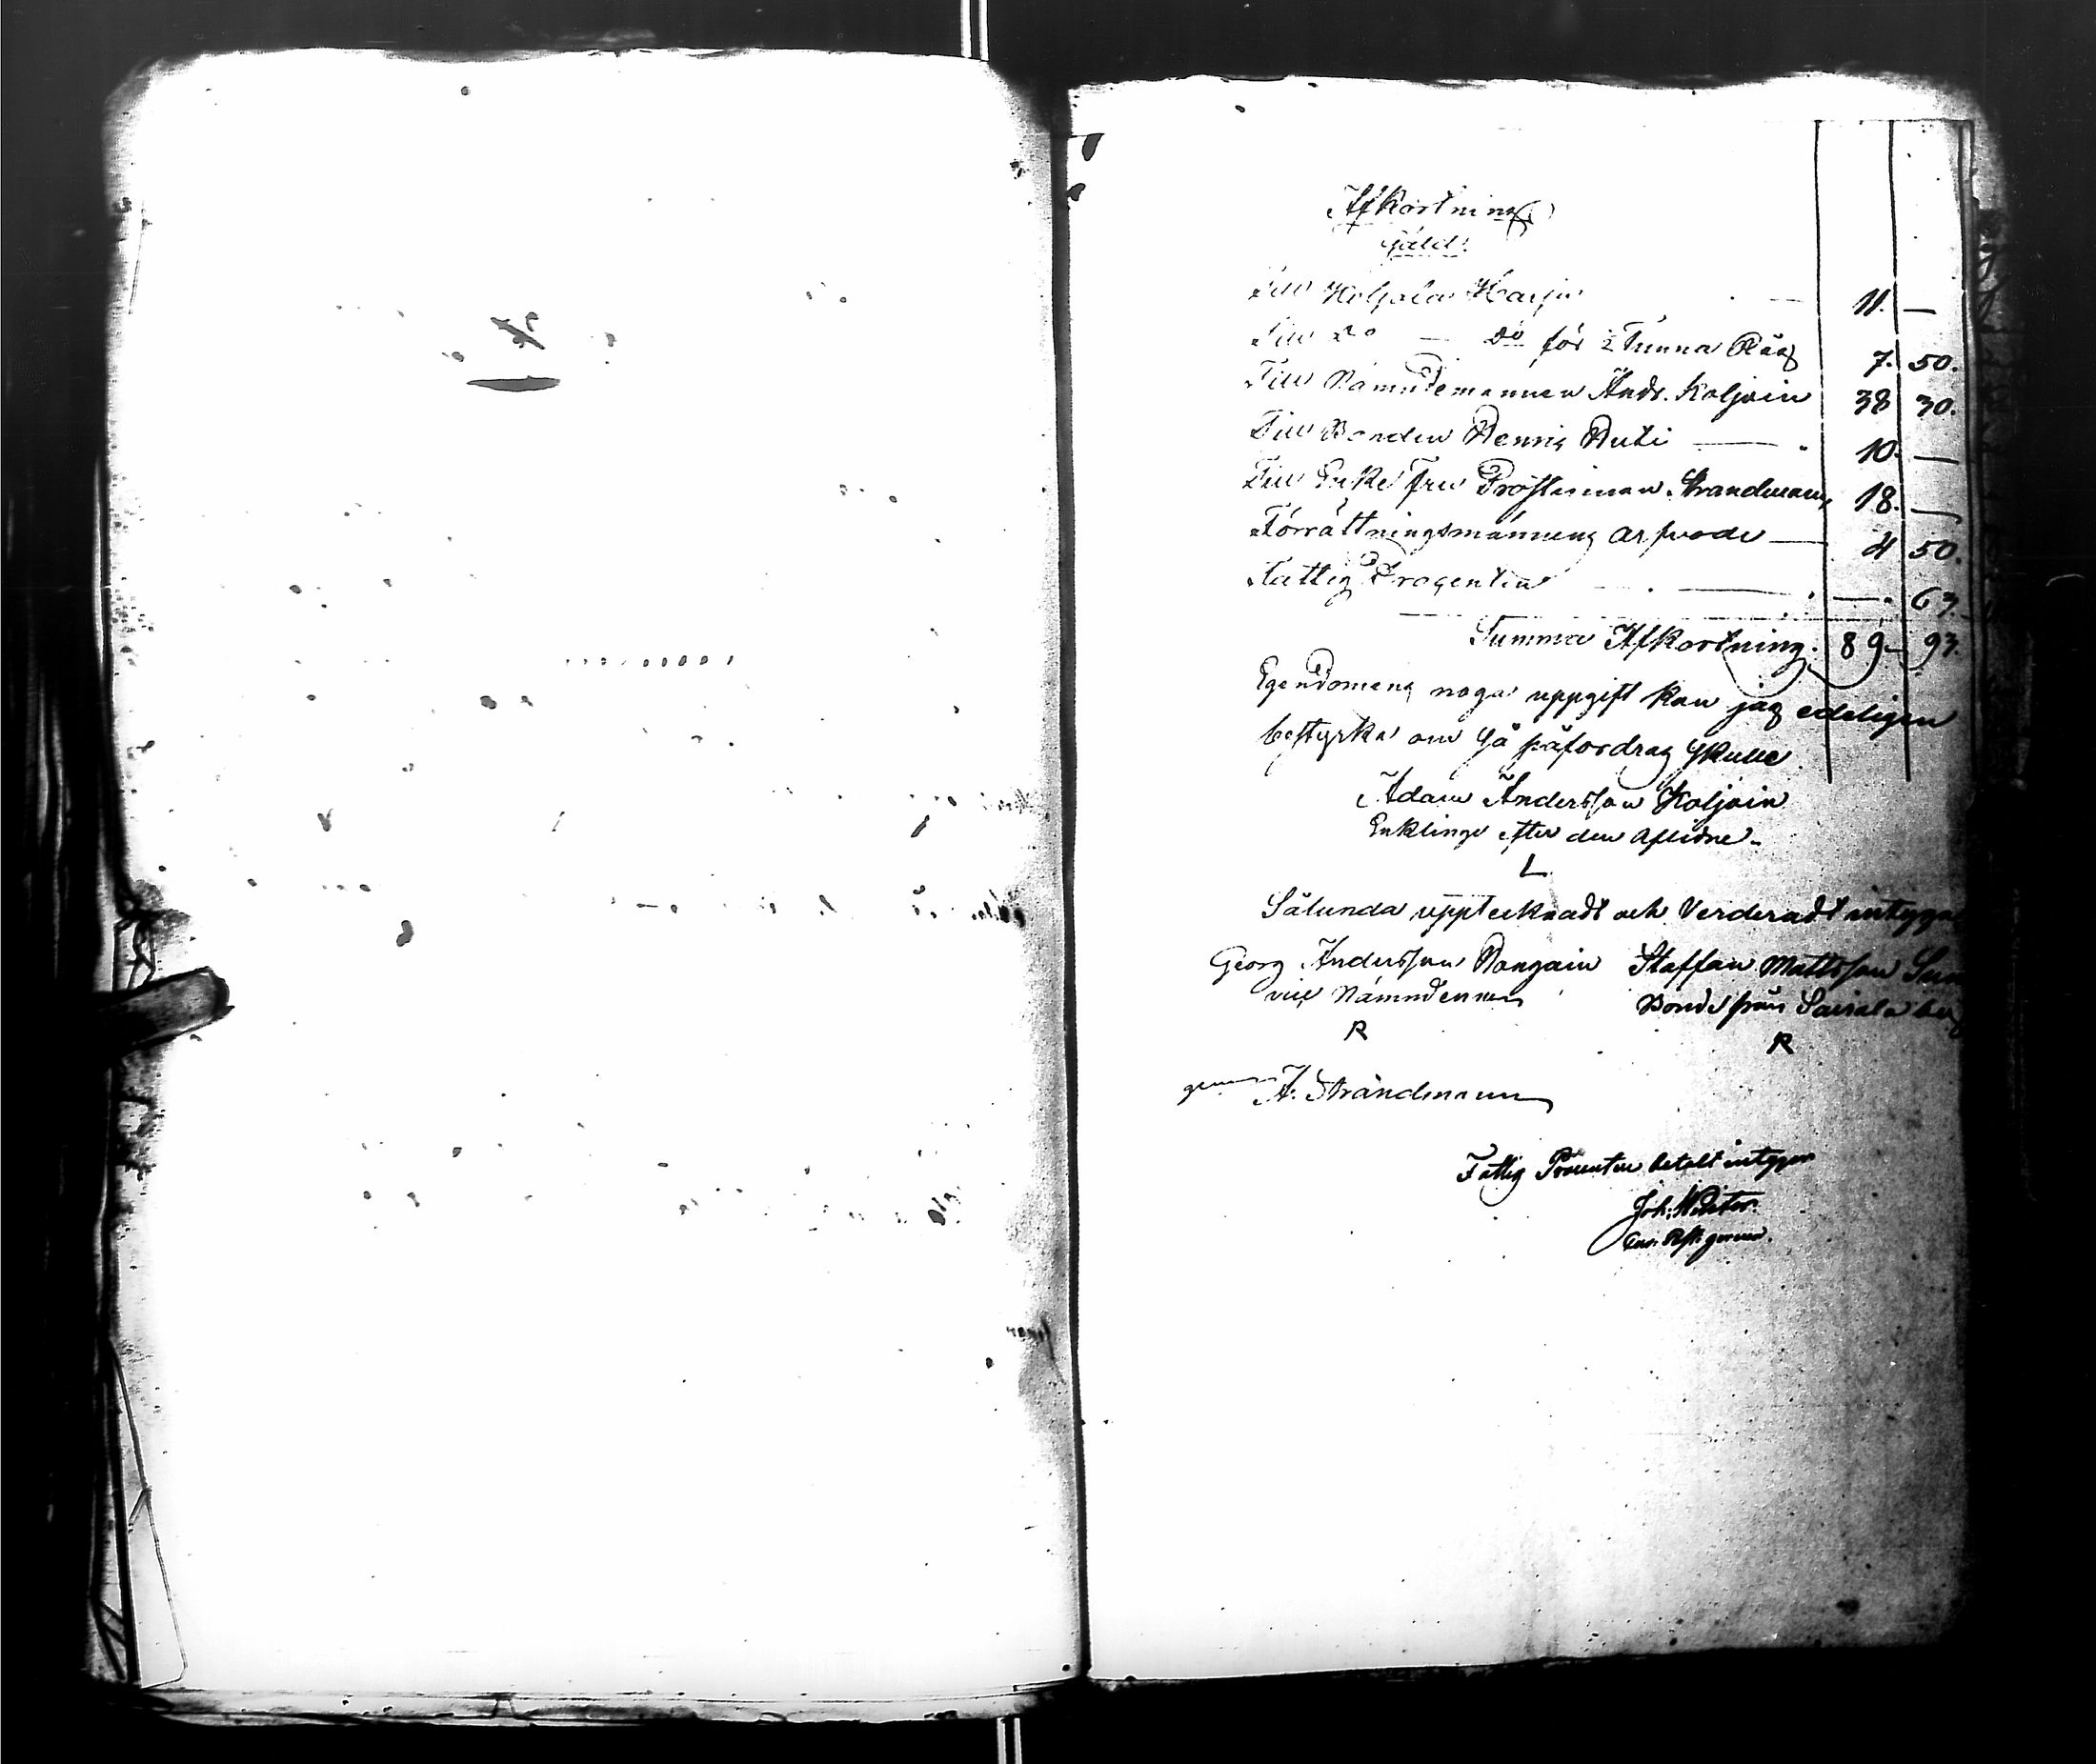 Afkortning
Gäld:
Till Koljola Harju — 11. —
Till Do — Do för ½ Tunna Råg 7. 50.
Till Nämndemannen Andr. Koljoin 38 30.
Till Bonden Hennig Huti — 10. —
Till Enke Fru Prostinnan Strandman, 18. —
Förrättningsmännens arfvode — 4 50.
Fattig Procenten — — 63.
Summa Afkortning. 89. 93.
Egendomens noga uppgift kan jag edeligen
bestyrka om så påfordras skulle
Adam Andersson Koljoin
Enkling efter den Aflidne.
Sålunda upptecknadt och Verderadt intyga
Georg Andersson Staffan Mattsson
vice Nämndeman Bonde från Sairala by
R R
genom A. Strandman
Fattig Procenten betalt intygar
Joh: